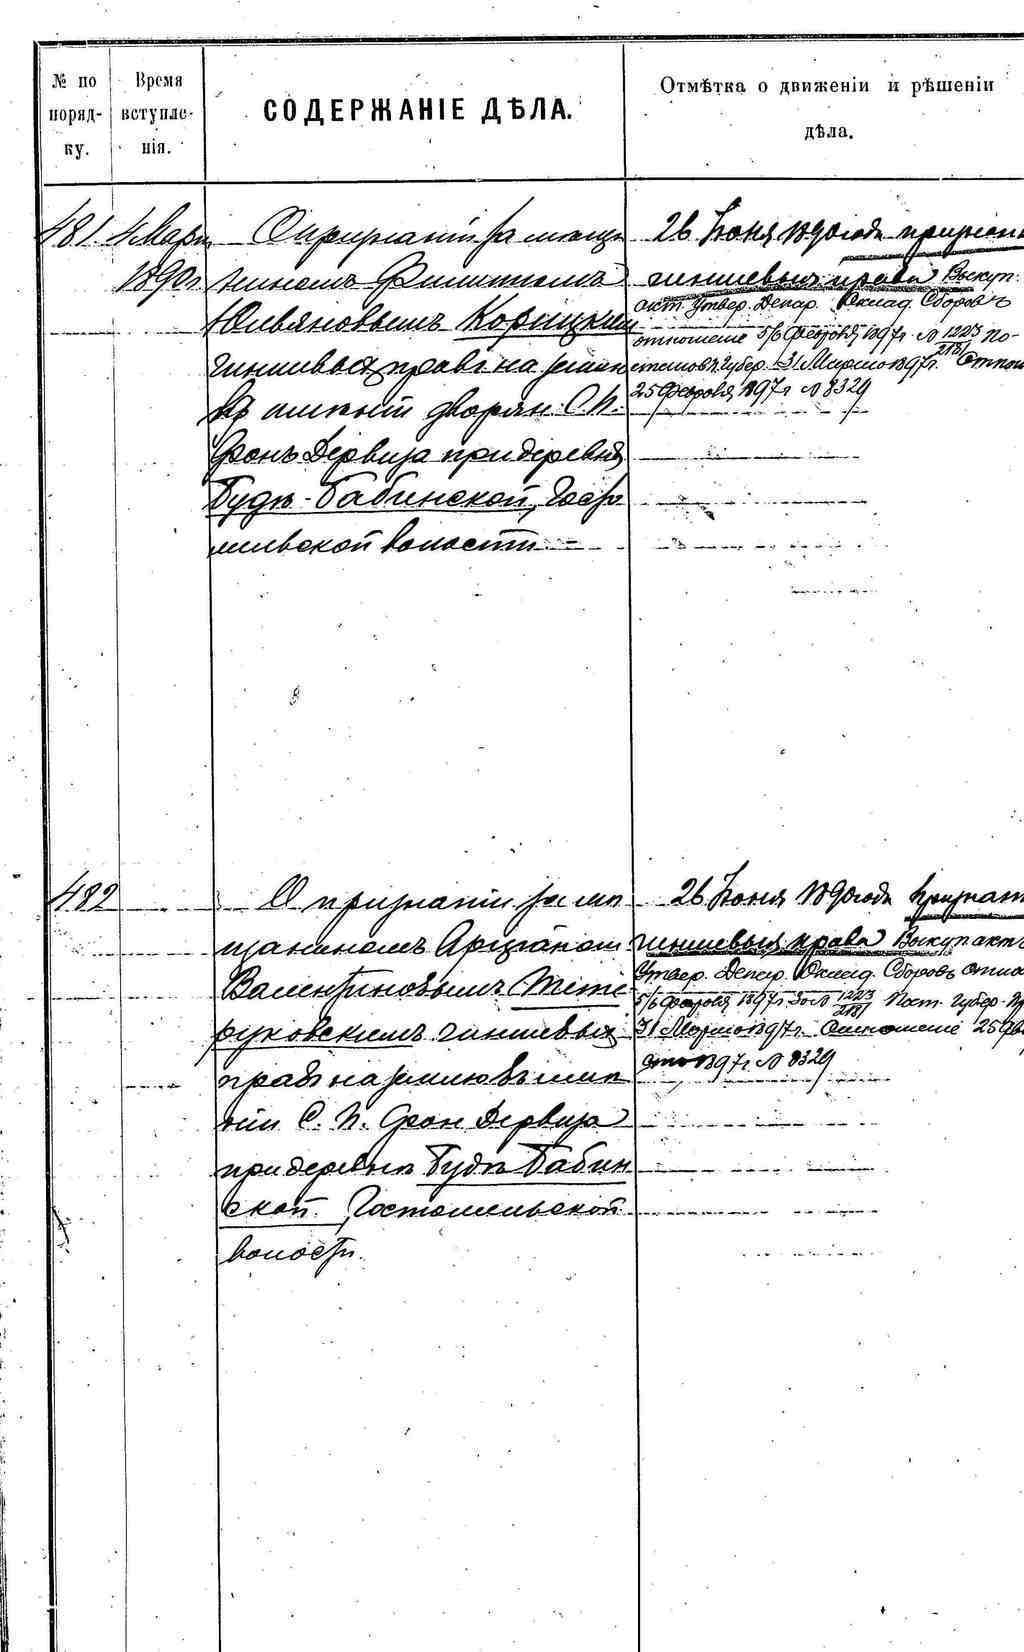 № по порядку.
Время вступленія.
СОДЕРЖАНІЕ ДѢЛА.
Отмѣтка о движеніи и рѣшеніи
дѣла.
481. 4 Март
О признаніи за мѣща
1890 г.
ниномъ Филиппомъ
Юльяновымъ Корицким
чиншевыхъ правъ на земл
въ имѣніи дворян. С. П.
Фонъ Дервиза при деревнѣ
Будѣ-Бабинской, Госто
мельской волости
26 Іюня 1890 года признан
чиншевыя права Выкуп.
акт. Утвер. Депар. Оклад. Сборовъ
отношеніе 5/6 Февраля 1897 г. № 1223/2181 По-
становл. Губер. 31 Марта 1897 г. Отнош
25 Февраля 1897 г. № 8329
482
О признаніи за мѣ
щаниномъ Арцизаном
Валентиновымъ Мете
руковскимъ чиншевыхъ
правъ на землю въ имѣ
ніи С. П. Фон Дервиза
при деревнѣ Будѣ Бабин
ской, Гостомельской
волости.
26 Іюня 1890 года Признан
чиншевыя права Выкуп акт
Утвер. Депар. Оклад. Сборовъ отно
5/6 Февраля 1897 г. за № 1223/2181 Пост. Губер. Пр
31 Марта 1897 г. Отношеніе 25 Ав
ста 1897 г. № 8329